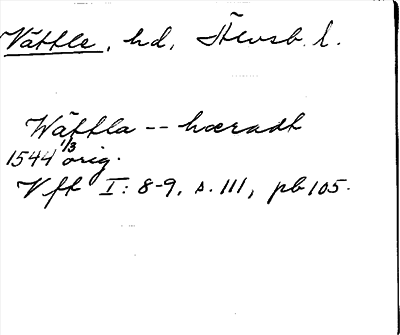 Vättle, hd, Älvsb. l.
Wättla -- hæradt
1544 1/3 orig.
Vft I: 8-9, s. 111, pb 105.